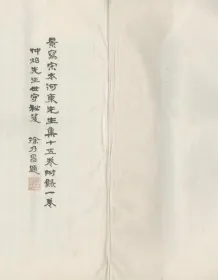 景寫宋本河東先生集十五卷附錄一卷
仲炤先生世守秘笈 徐乃昌題